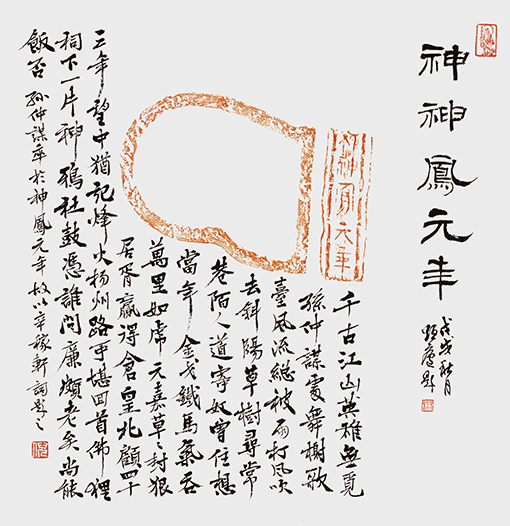 神神鳳元年
戊戌秋月
神鳳元年
千古江山英雄無覓
孫仲謀處舞榭歌
臺風流總被雨打風吹
去斜陽草樹尋常
巷陌人道寄奴曾住想
當年金戈鐵馬氣吞
萬里如虎元嘉草〻封狼
居胥贏得倉皇北顧四十
三年望中猶記烽火揚州路可堪回首佛狸
祠下一片神鴉社鼓憑誰問廉頗老矣尚能
飯否 孫仲謀卒於神鳳元年故以辛稼軒詞題之